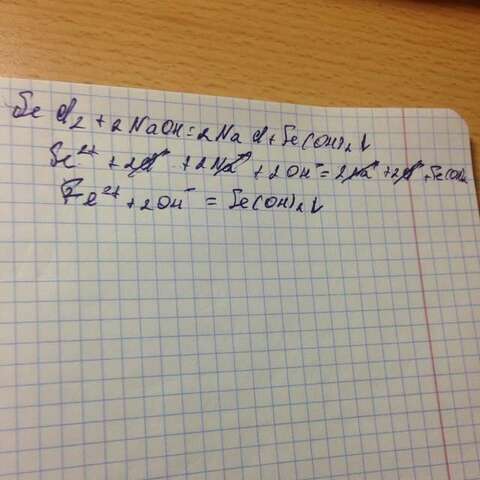 FeCl₂ + 2NaOH = 2NaCl + Fe(OH)₂↓
Fe²⁺ + 2Cl⁻ + 2Na⁺ + 2OH⁻ = 2Na⁺ + 2Cl⁻ + Fe(OH)₂
Fe²⁺ + 2OH⁻ = Fe(OH)₂↓